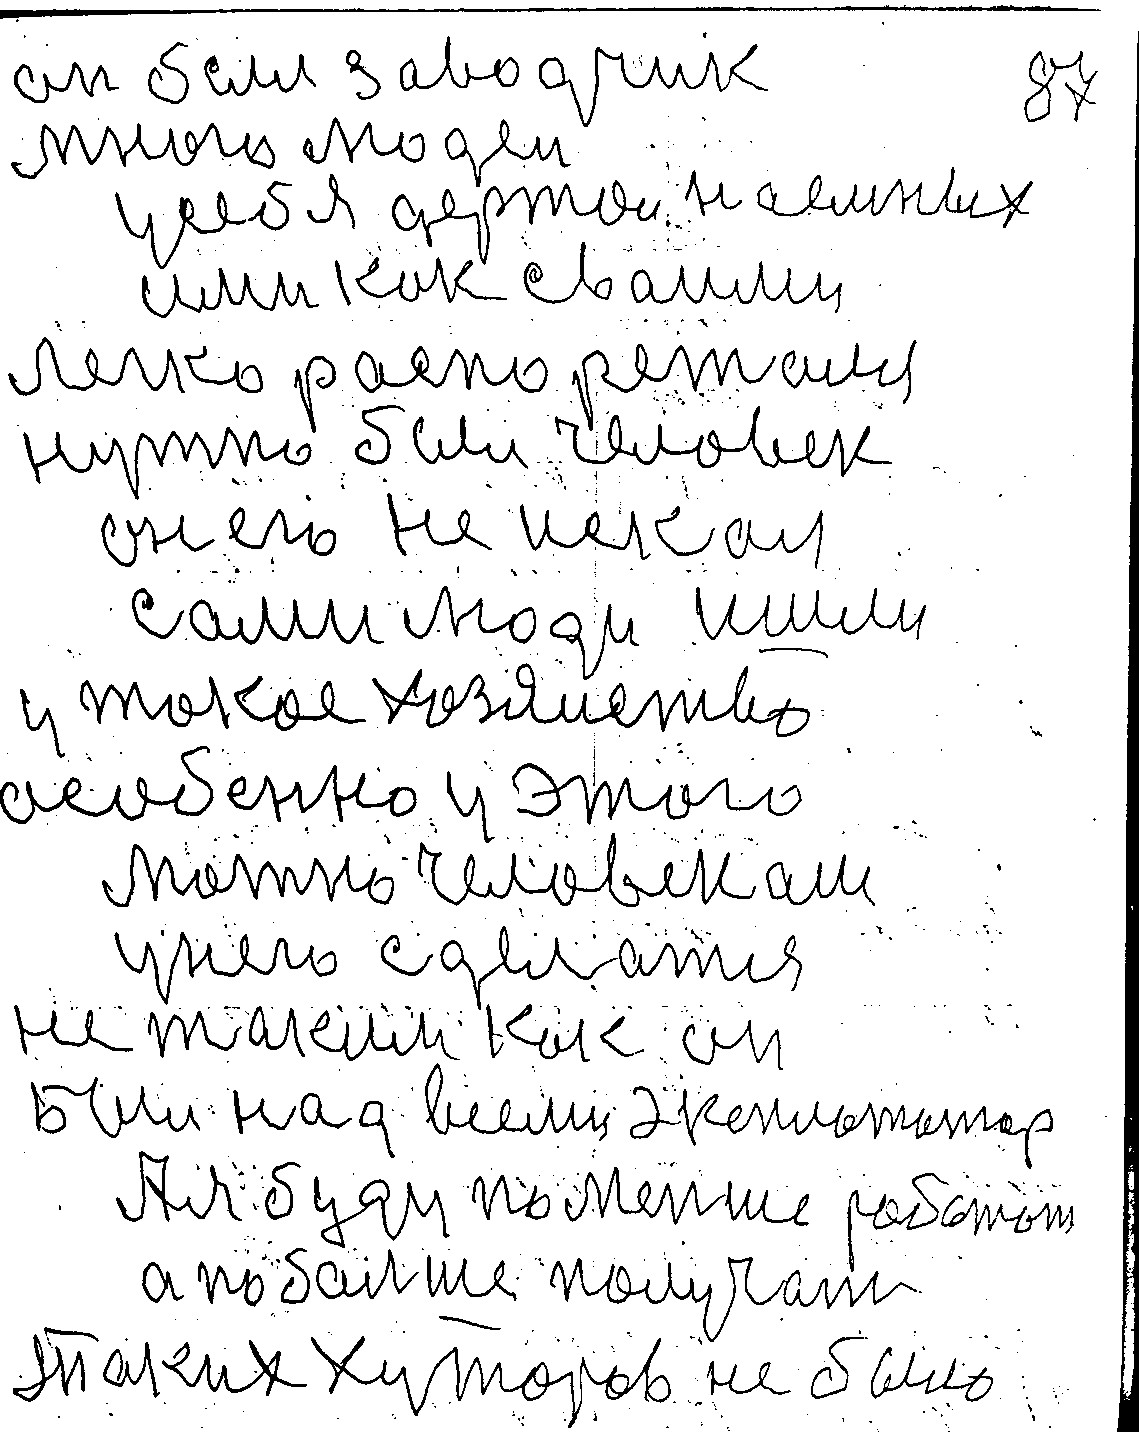 он был заводчик 87
много людеи
усебя держал наемных
ими как сваими
легко распорежался
нужно был человек
он его не искал
сами люди ишли
у такое хозяиство
особенно у этого
можно человекам
унего сделатся
не таким как он
Был над всеми эксплотатор
Ая буду поменше работат
а поболше получат
Таких хуторов не было